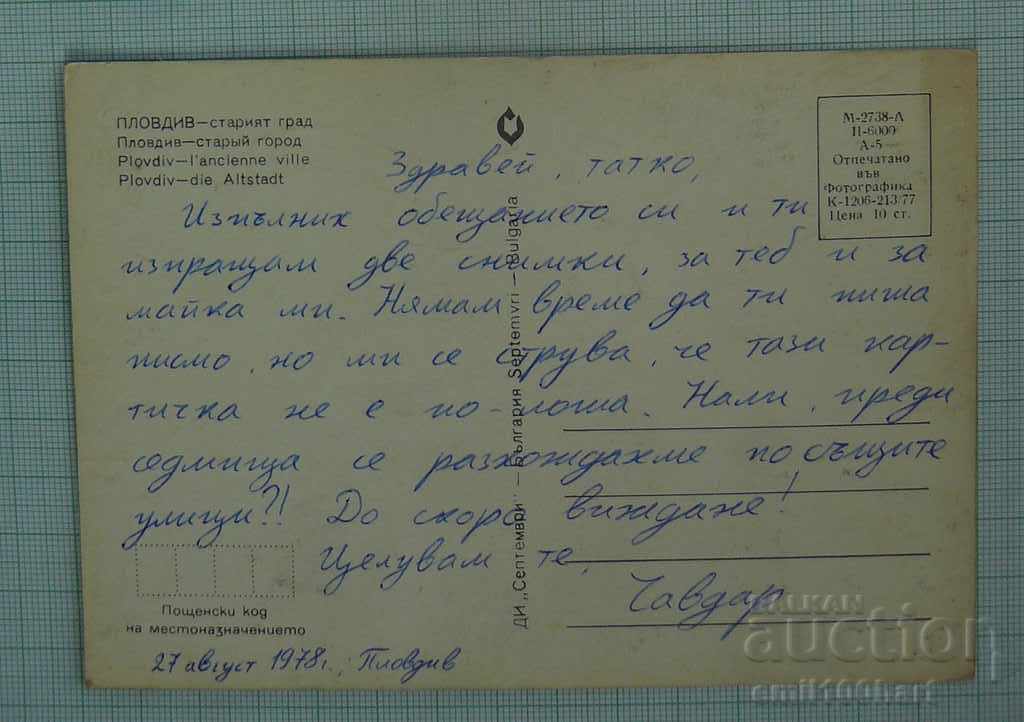 ПЛОВДИВ—старият град
Пловдив—старый город
Plovdiv—l'ancienne ville
Plovdiv—die Altstadt
М-2738-А
П-6000
А-5
Отпечатано
във
Фотографика
К-1206-213/77
Цена 10 ст.
Здравей, татко,
Изпълних обещанието си и ти
изпращам две снимки, за теб и за
майка ми. Нямам време да ти пиша
писмо, но ми се струва, че тази кар-
тичка не е по-лоша. Нали, преди
седмица се разхождахме по същите
улици?! До скоро виждане!
Целувам те,
Чавдар
ДИ „Септември" — България Septemvri — Bulgaria
Пощенски код
на местоназначението
27 август 1978 г., Пловдив
BALKAN
auction
emil100hart